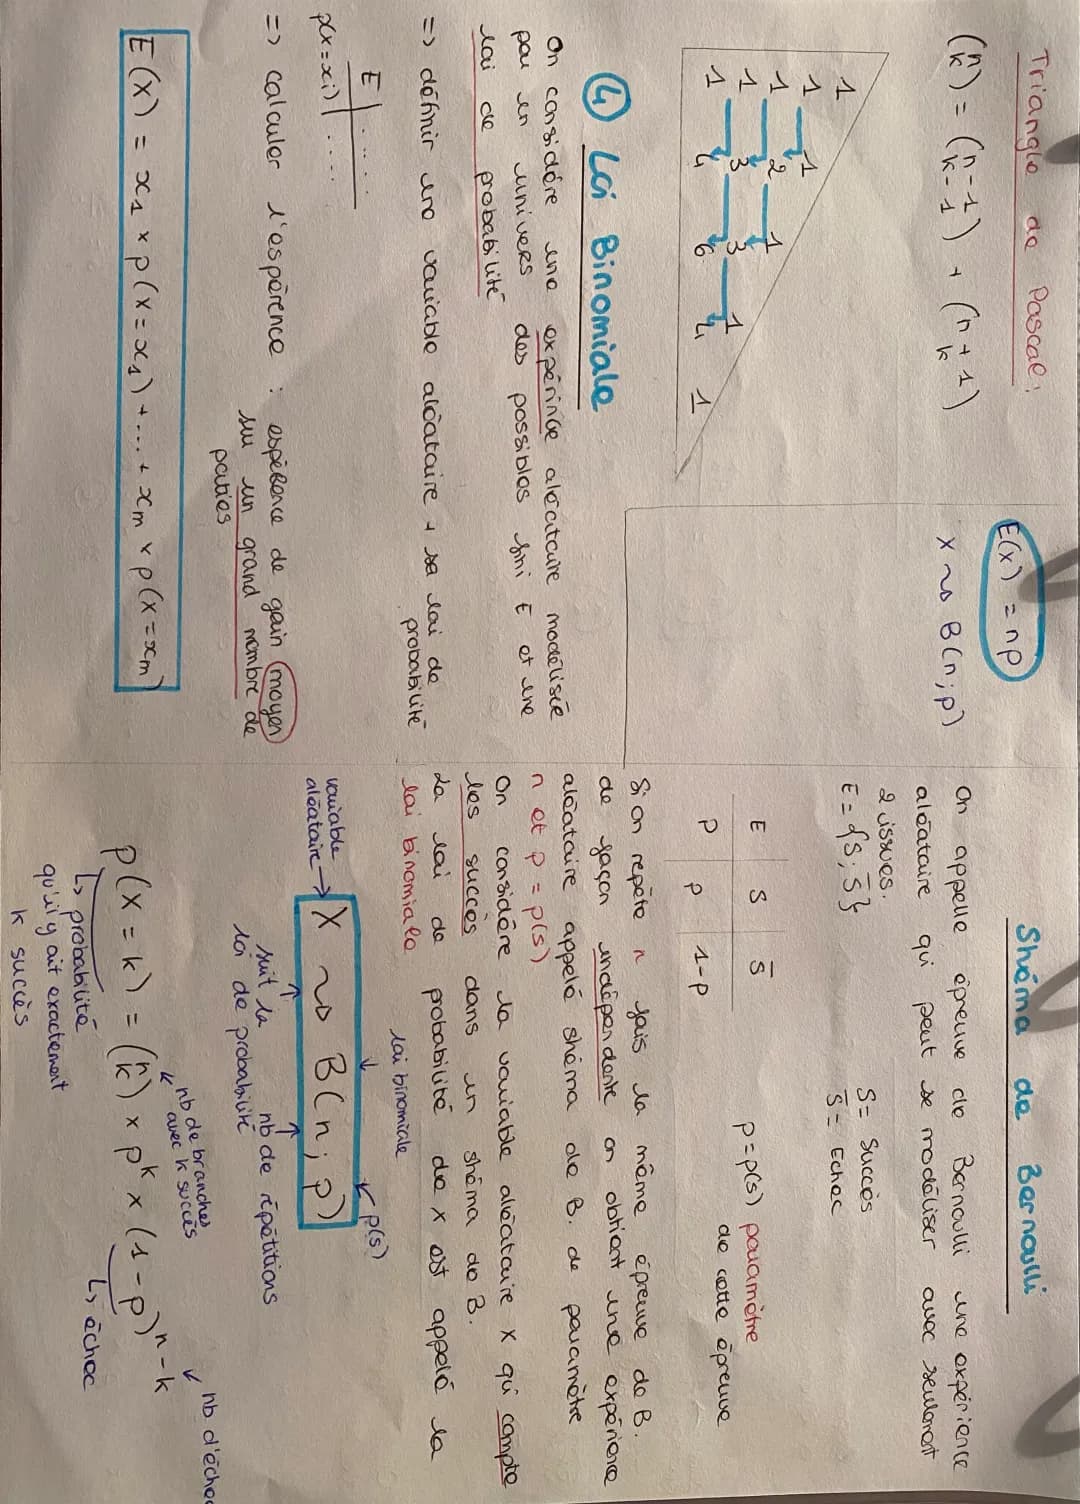 Triangle de Pascal :
(n k) = (n-1 k-1) + (n+1 k)
1
1 1
1 2 1
1 3 3 1
1 4 6 4 1
E(x) = np
X ~> B(n;p)
④ Loi Binomiale
On considère une expérince aléatoire modélisée
par un univers des possibles fini E et une
loi de probabilité
=> définir une variable aléatoire + sa loi de
probabilité
E | .. ...
p(x=xi) | ....
=> calculer l'espérence : espérence de gain moyen
su un grand nombre de
parties
E(X) = x1 × p(X=x1) + ... + xm × p(X=xm)
Shéma de Bernoulli
On appelle épreuve de Bernoulli une expérience
aléatoire qui peut se modéliser avec seulement
2 issues.
E = {S; S̄}
S = Succès
S̄ = Echec
E S S̄
P p 1-p
p = p(s) paramètre
de cette épreuve
Si on repète n fois la même épreuve de B.
de façon indépendante on obtient une expérience
aléatoire appelé shéma de B. de paramètre
n et p = p(s)
On considère la variable aléatoire X qui compte
les succès dans un shéma de B.
La loi de probabilité de X est appelé la
loi binomiale
loi binomiale
p(s)
variable
aléatoire → X ~> B(n;p)
suit la
loi de probabilité
nb de répétitions
nb de branches
avec k succès
nb d'échec
p(X=k) = (n k) × p^k × (1-p)^n-k
↳ probabilité
qu'il y ait exactement
k succès
↳ échec